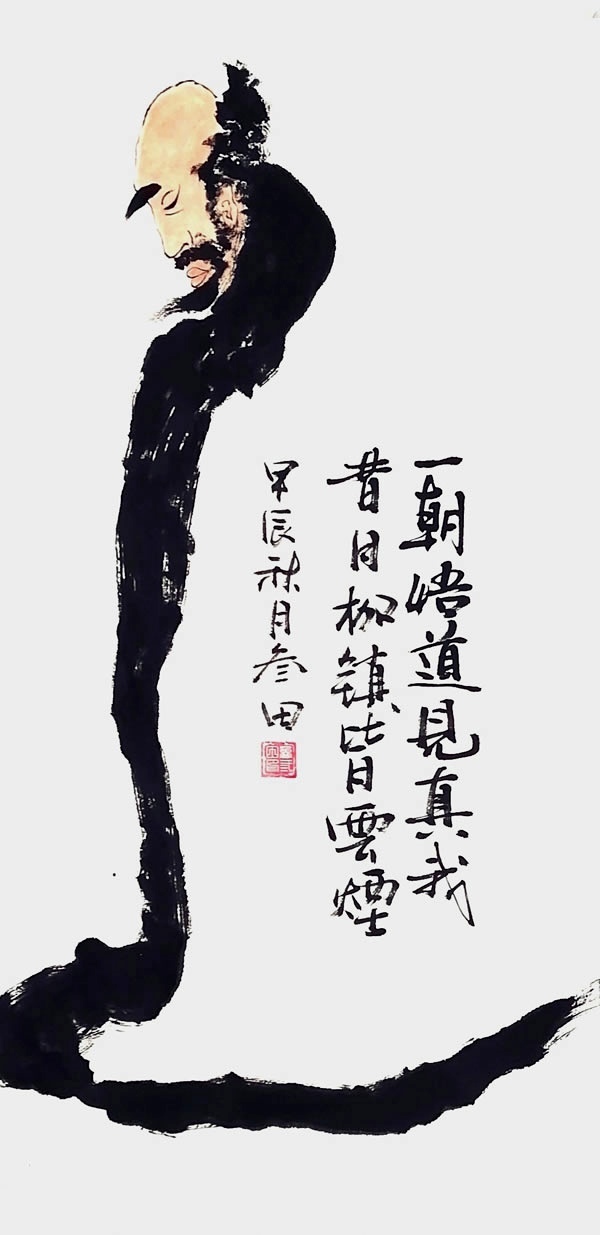 一朝悟道見真我
昔日枷鎖皆雲煙
甲辰秋月叁田